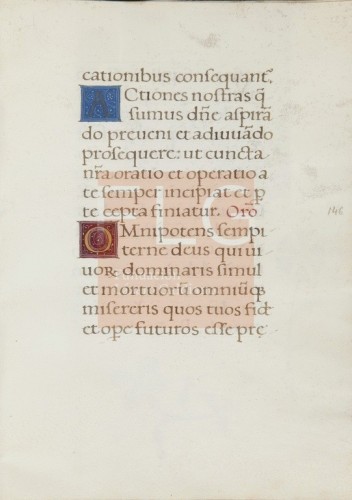 cationibus consequant᷑.
ACtiones nostras q̃
sumus dñe aspirã
do preueni et adiuuãdo
prosequere: ut cuncta
nr̃a oratio et operatio a
te semper incipiat et p̱
te cepta finiatur. Orõ
OMnipotens sempi
terne deus qui ui
uoꝝ dominaris simul
et mortuorũ omniũqꝫ
misereris quos tuos fide
et ope futuros esse pre
146
FLG